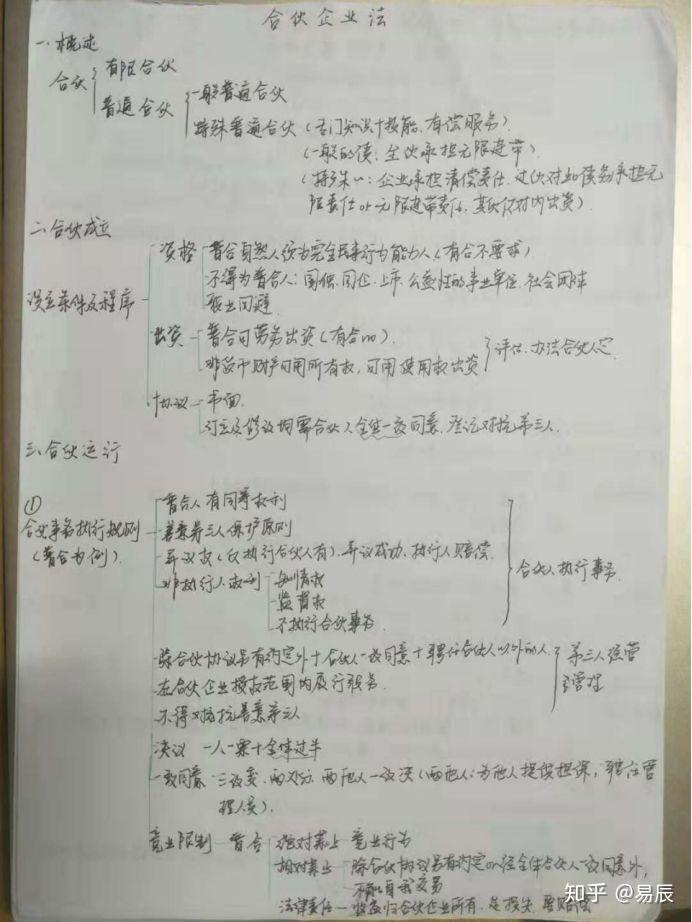 合伙企业法
一.概述
合伙 有限合伙
普遍合伙 一般普遍合伙
特殊普遍合伙(专门知识+技能、有偿服务)
(一般的债:全伙承担无限连带)
(特殊〃:企业承担清偿责任.过伙对此债务承担无
限责任or无限连带责任,其伙仅对内出资)
二.合伙成立
设立条件及程序 资格 普合自然人须为完全民事行为能力人(有合不要求)
不得为普合人:国独.国企.上市.公益性的事业单位.社会团体
竞业回避
出资 普合可劳务出资(有合no).
非货币财产可用所有权,可用使用权出资 评估.办法合伙人定
协议 书面
订立及修改均需合伙人全体一致同意.
三.合伙运行
①
合伙事务执行规则
(普合为例)
普合人有同等权利
善意第三人保护原则
异议权(仅执行合伙人有).异议成功,执行人赔偿.
非执行人权利 知情权
监督权
不执行合伙事务
合伙人执行事务
除合伙协议另有约定外+合伙人一致同意+聘任合伙人以外的人.
在合伙企业授权范围内履行职务.
不得对抗善意第三人
第三人经营
管理
决议 一人一票+全体过半
一致同意 三改变.两处分.两他人一致决(两他人:为他人提供担保,聘任管
理人员).
竞业限制 普合 绝对禁止 竞业行为
相对禁止 除合伙协议另有约定or经全体合伙人一致同意外,
不可以自我交易
法律责任 收益归合伙企业所有.造损失.要赔偿
知乎 @易辰